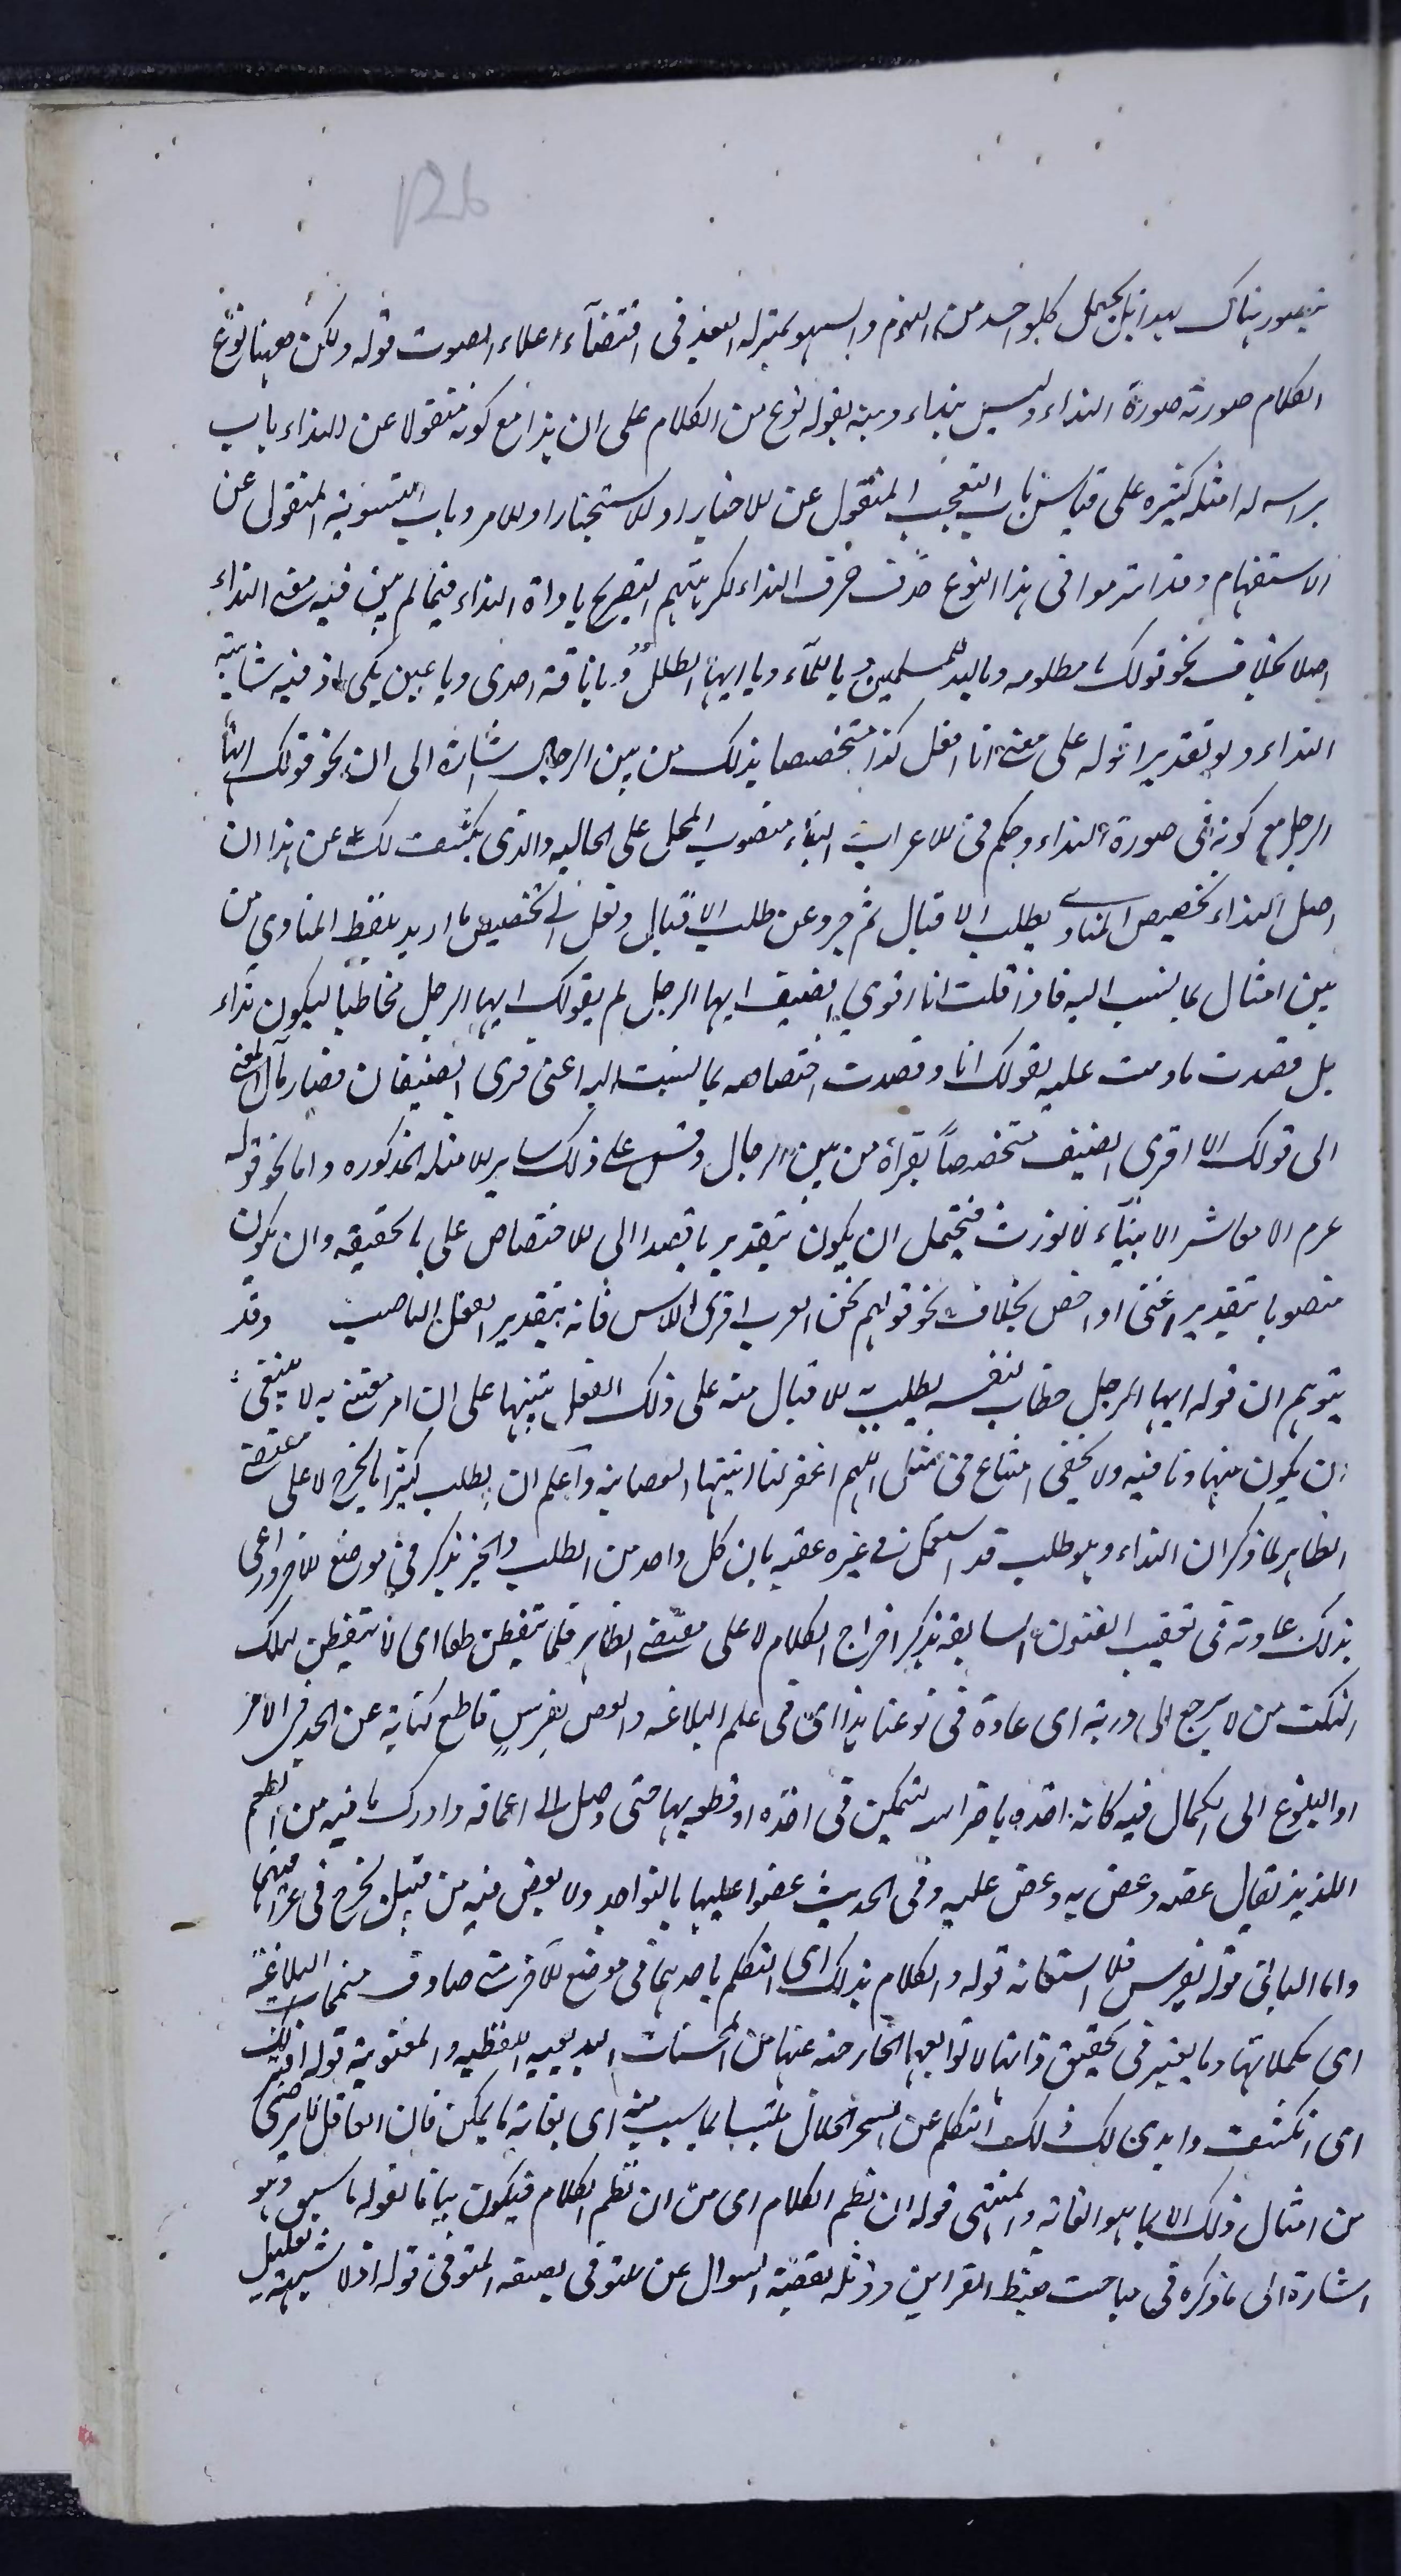 126
يتصور هناك بعد انا بان يجعل كل واحد من النوم والسهو بمنزلة البعد فى اقتضاء اعلاء الصوت قوله ولكن ههنا نوع
الكلام صورته صورة النداء وليس بنداء ونبه بقوله نوع من الكلام على ان هذا مع كونه منقولا عن النداء باب
براسه له امثله كثيره على قياس باب التعجب المنقول عن الاخبار او الاستخبار او الامر وباب التسوية المنقول عن
الاستفهام وقد التزموا فى هذا النوع حذف حرف النداء لكراهتهم التصريح باداة النداء فيما لم يبق فيه معنى النداء
اصلا بخلاف نحو قولك يا مظلوم ويا لله للمسلمين ويا للماء ويا ايها الطلل ويا ناقة جدى ويا عين بكى اذ فيه شائبة
النداء ولو تقديرا قوله على معنى انا افعل كذا متخصصا بذلك من بين الرجال اشارة الى ان نحو قولك ايها
الرجل مع كونه فى صورة النداء وحكمه فى الاعراب والبناء منصوب المحل على الحاليه والذى يكشف لك عن هذا ان
اصل النداء تخصيص المنادى بطلب الاقبال ثم جرد عن طلب الاقبال ونقل الى تخصيص ما اريد بلفظ المنادى من
بين امثال بما نسب اليه فاذا قلت انا اقرى الضيف ايها الرجل لم يقولك ايها الرجل مخاطبا ليكون نداء
بل قصدت ما دمت عليه بقولك انا وقصدت اختصاصه بما نسبت اليه اعنى قرى الضيفان فصار مآل المعنى
الى قولك انا اقرى الضيف متخصصاً بقراه من بين الرجال وقس على ذلك ساير الامثله المذكوره واما نحو قوله
عم انا معاشر الانبياء لا نورث فيحتمل ان يكون بتقدير يا قصدا الى الاختصاص على ما تحقيقه وان يكون
منصوبا بتقدير اعنى او اخص بخلاف نحو قولهم نحن العرب اقرى الناس فانه بتقدير الفعل الناصب وقد
يتوهم ان قوله ايها الرجل خطاب لنفسه يطلب به الاقبال منه على ذلك الفعل تنبيها على ان امر معتنى به لا ينبغى
ان يكون متهاونا فيه ولا يخفى امتناع فى مثل اللهم اغفر لنا ايتها العصابة واعلم ان الطلب كثيرا ما يخرج لا على مقتضى
الظاهر لما ذكر ان النداء وهو طلب قد استعمل فى غيره عقبه بان كل واحد من الطلب والخبر يذكر فى موضع الاخر وراعى
بذلك عادته فى تعقيب الفنون السابقه بذكر اخراج الكلام لا على مقتضى الظاهر قلما يتفطن طعا اى لا يتفطن لملك
النكت من لا يرجع الى دربة اى عادة فى نوعنا هذا اى فى علم البلاغه والعض بضرس قاطع كناية عن الجد فى الامر
او البلوغ الى الكمال فيه كانه اخذه باضراسه لتمكين فى اخذه او قطعه بها حتى وصل الى اعماقه وادرك ما فيه من الطعم
اللذيذ يقال عضه وعض به وعض عليه وفى الحديث عضوا عليها بالنواجذ ولا يعض فيه من قبيل يجرح فى عراقيبها
واما الباء فى قوله بضرس فللاستعانه قوله والكلام بذلك اى التكلم باحدهما فى موضع الآخر متى صادف متممات البلاغة
اى مكملاتها وما يعتبر فى تحقيق ذاتها لا توابعها الخارجه عنها من المحسنات البديعيه اللفظيه والمعنويه قوله افتر لك
اى انكشف وابدى لك ذلك التكلم عن السحر الحلال ملتبسا بما سبب منه اى بغاية ما يمكن فان العاقل لا يرضى
من امثال ذلك الا بما هو الغايه والمنتهى قوله ان نظم الكلام اى من ان نظم الكلام فيكون بيانا لقوله ما سبق وهو
اشارة الى ما ذكره فى مباحث ضبط القراين ورذله بقضية السوال عن متوفى بصيغه المتوفى قوله اذلا شبهة تعليل